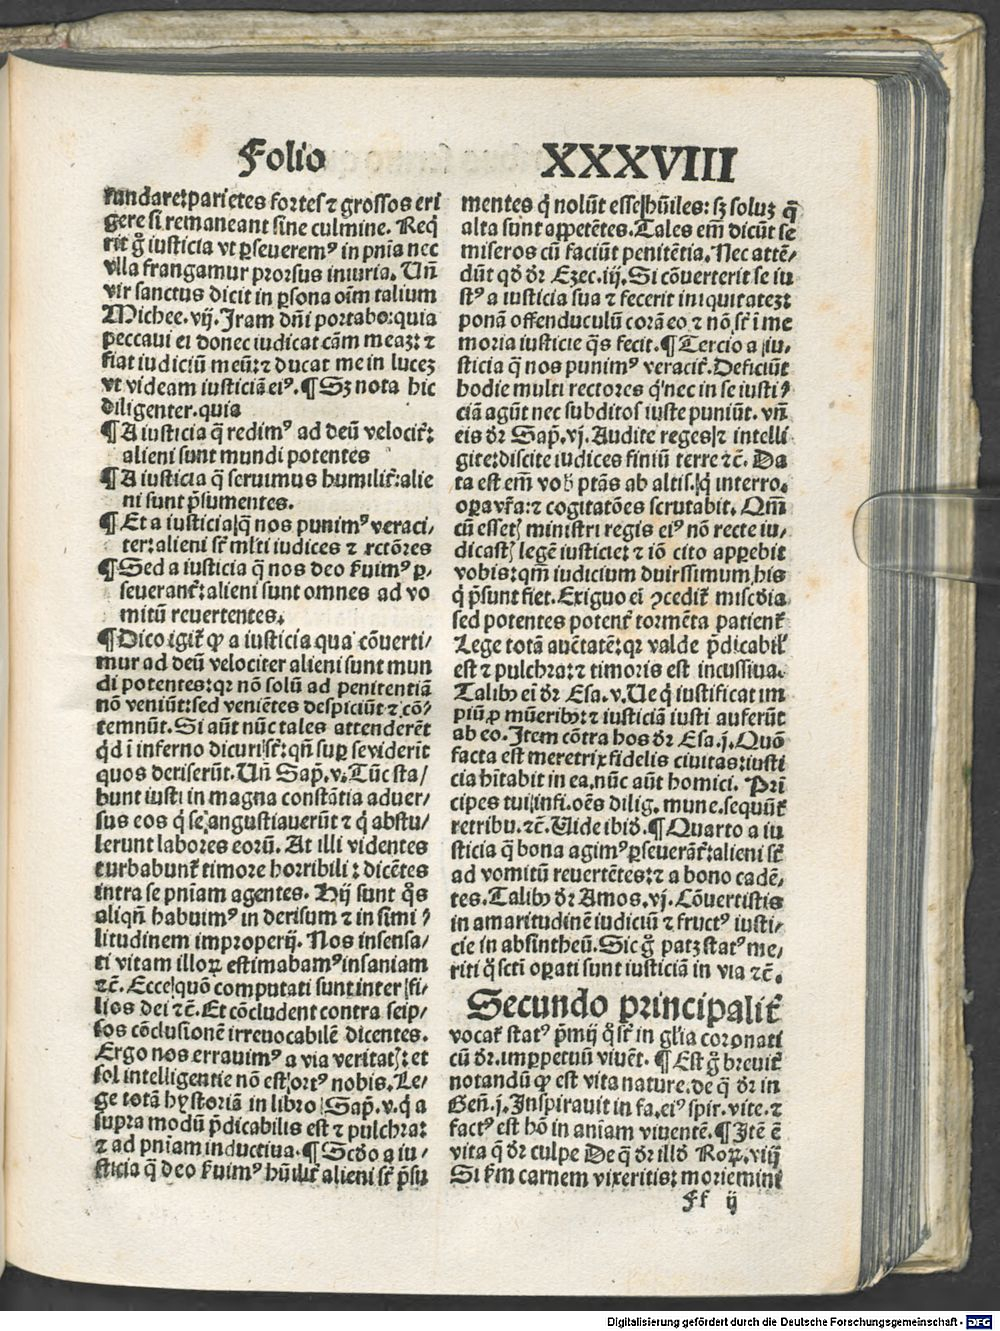 Folio XXXVIII
fundare: parietes fortes ⁊ grossos eri
gere si remaneant sine culmine. Req̄
rit g̊ iusticia vt ꝑseuerem⁹ in pnīa nec
vlla frangamur prorsus iniuria. Vn̄
vir sanctus dicit in ꝑsona oīm talium
Michee. vij. Iram dn̄i portabo: quia
peccaui ei donec iudicat cām meaꝫ: ⁊
fiat iudiciū meū: ⁊ ducat me in luceꝫ
vt videam iusticiā ei⁹. ¶ Sꝫ nota hic
diligenter. quia
¶ A iusticia q̄ redim⁹ ad deū velocit̄:
alieni sunt mundi potentes
¶ A iusticia q̄ seruimus humilit̄: alie
ni sunt p̄sumentes.
¶ Et a iusticia q̄ nos punim⁹ veraci⸗
ter: alieni st̄ ml̄ti iudices ⁊ rctōres
¶ Sed a iusticia q̄ nos deo s̄uim⁹ ꝑ⸗
seuerant̄: alieni sunt omnes ad vo
mitū reuertentes.
¶ Dico igit̄ ꝙ a iusticia qua cōuerti⸗
mur ad deū velociter alieni sunt mun
di potentes: qꝛ nō solū ad penitentiā
nō veniūt: sed veniētes despiciūt ⁊ cō⸗
temnūt. Si aūt nūc tales attenderēt
qd̄ ī inferno dicuri st̄: qn̄ suꝑ se viderit
quos deriserūt. Vn̄ Sap̄. v. Tūc sta⸗
bunt iusti in magna constātia aduer⸗
sus eos q̄ se angustiauerūt ⁊ q̄ abstu⸗
lerunt labores eorū. At illi videntes
turbabunt̄ timore horribili: dicētes
intra se pnīam agentes. Hij sunt q̊s
aliqn̄ habuim⁹ in derisum ⁊ in simi⸗
litudinem improperij. Nos insensa⸗
ti vitam illoꝝ estimabam⁹ insaniam
⁊c̄. Ecce quō computati sunt inter fi⸗
lios dei ⁊c̄. Et cōcludent contra seip⸗
sos cōclusionē irreuocabilē dicentes.
Ergo nos errauim⁹ a via veritatꝭ: et
sol intelligentie nō est ort⁹ nobis. Le⸗
ge totā hystoriā in libro Sap̄. v. q̄ a
supra modū p̄dicabilis est ⁊ pulchra:
⁊ ad pnīam inductiua. ¶ Scd̄o a iu⸗
sticia q̄ deo s̄uim⁹ hūilit̄ alieni st̄ p̄su
mentes q̄ nolūt esse hūiles: sꝫ soluꝫ q̄
alta sunt appetētes. Tales em̄ dicūt se
miseros cū faciūt penitētia. Nec attē⸗
dūt qd̄ dr̄ Ezec. iij. Si cōuerterit se iu
st⁹ a iusticia sua ⁊ fecerit iniquitateꝫ:
ponā offenduculū corā eo ⁊ nō st̄ ī me
moria iusticie q̄s fecit. ¶ Tercio a iu⸗
sticia q̄ nos punim⁹ veracit̄. Deficiūt
hodie multi rectores q̄ nec in se iusti⸗
ciā agūt nec subditos iuste puniūt. vn̄
eis dr̄ Sap̄. vj. Audite reges ⁊ intelli
gite: discite iudices finiū terre ⁊c̄. Da
ta est em̄ vob̄ ptās ab altis. q̄ interro.
oꝑa vr̄a: ⁊ cogitatōes scrutabit. Qm̄
cū essetꝭ ministri regis ei⁹ nō recte iu⸗
dicastꝭ legē iusticie: ⁊ iō cito apparebit
vobis: qm̄ iudicium durissimum his
q̄ p̄sunt fiet. Exiguo em̄ ꝯcedit̄ mis̄cdia
sed potentes potent̄ tormēta patient̄
Lege totā auctatē: qꝛ valde p̄dicabil̄
est ⁊ pulchra: ⁊ timoris est incussiua.
Talibꝰ em̄ dr̄ Esa. v. Ve q̄ iustificat im
piū ꝓ mūeribꝰ: ⁊ iusticiā iusti auferūt
ab eo. Item cōtra hos dr̄ Esa. j. Quō
facta est meretrix fidelis ciuitas: iusti
cia hītabit in ea, nūc aūt homici. Prī
cipes tui infi. oēs dilig. mune. sequūt̄
retribu. ⁊c̄. Vide ibid̄. ¶ Quarto a iu
sticia q̄ bona agim⁹ ꝑseuerāt̄: alieni st̄
ad vomitū reuertētes: ⁊ a bono cadē⸗
tes. Talibꝰ dr̄ Amos. vj. Cōuertistis
in amaritudinē iudiciū ⁊ fruct⁹ iusti⸗
cie in absintheū. Sic g̊ patꝫ stat⁹ me⸗
riti q̊ scti oꝑati sunt iusticiā in via ⁊c̄.
Secundo principalit̄
vocat̄ stat⁹ p̄mij q̊ st̄ in gl̄ia coronati
cū dr̄. imꝑpetuū viuēt. ¶ Est g̊ breuit̄
notandū ꝙ est vita nature. de q̄ dr̄ in
Gen̄. j. Inspirauit in fa. ei⁹ spir. vite. ⁊
fact⁹ est hō in aniam viuentē. ¶ Itē ē
vita q̄ dr̄ culpe De q̄ dr̄ illd̄ Roꝝ. viij
Si s̄m carnem vixeritis: moriemini
Ff ij
Digitalisierung gefördert durch die Deutsche Forschungsgemeinschaft - DFG